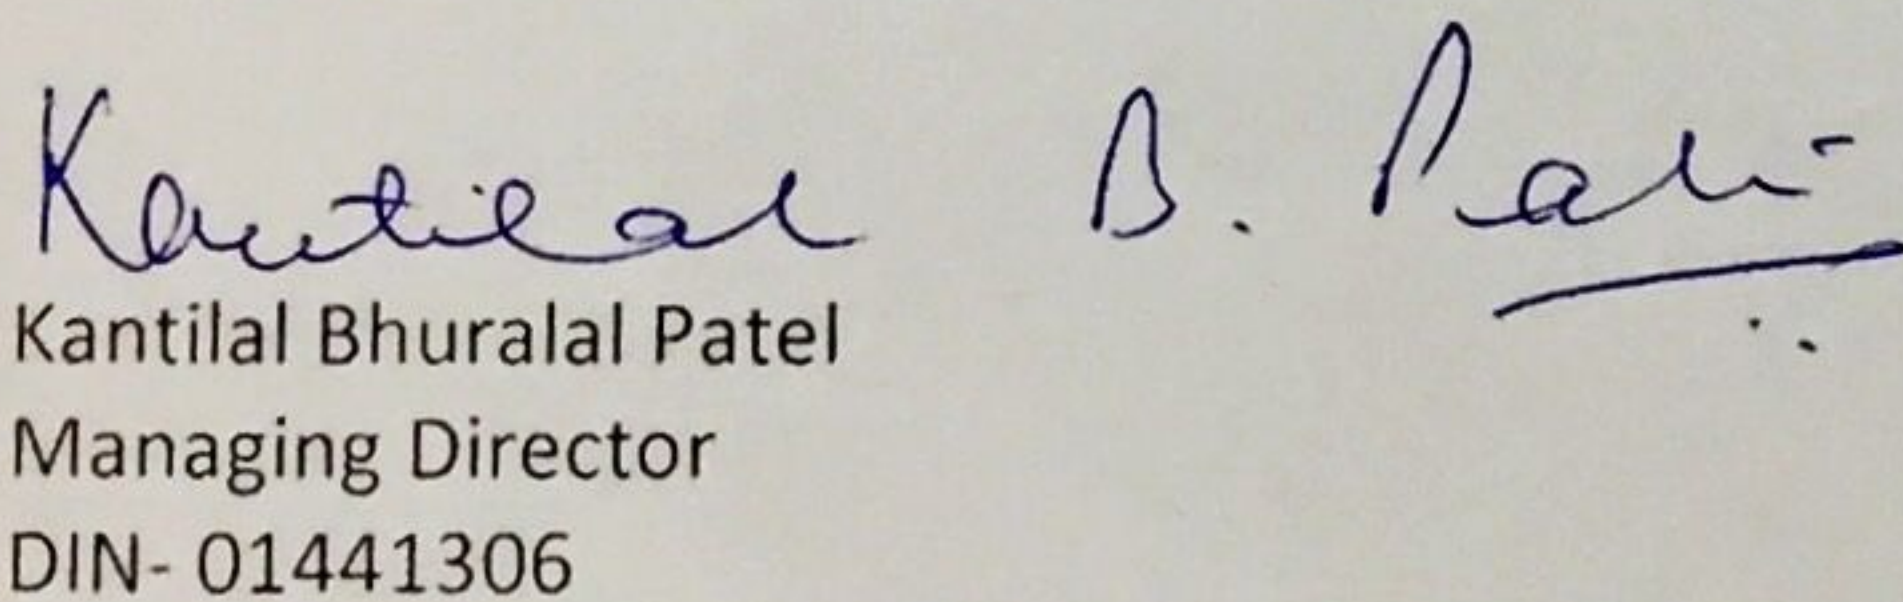 Kantilal B. Patel
Kantilal Bhuralal Patel
Managing Director
DIN- 01441306